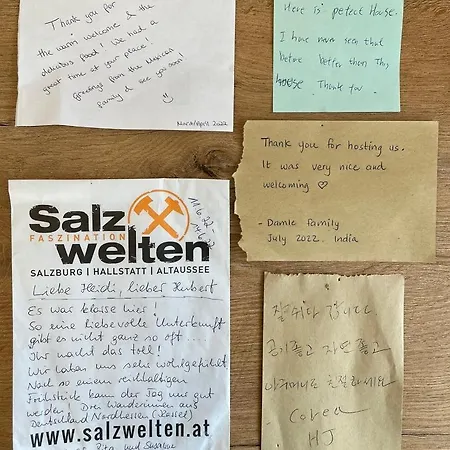 Thank you for
the warm welcome & the
delicious food! We had a
great time at your place!
Greetings from the Mexican
family & see you soon!
March/April 2022
Here is petect House.
I have never seen that
before better than This
house. Thank you
Thank you for hosting us.
It was very nice and
welcoming ♡
- Damle Family
July 2022. India
Salz
FASZINATION
welten
SALZBURG | HALLSTATT | ALTAUSSEE
11.6.22 -
14.6.22
Liebe Heidi, lieber Hubert
Es war klasse hier!
So eine liebevolle Unterkunft
gibt es nicht ganz so oft ....
Ihr macht das toll!
Wir haben uns sehr wohlgefühlt.
Nach so einem reichhaltigen
Frühstück kann der Tag nur gut
werden! Drei Wanderinnen aus
Deutschland Nordhessen (Kassel)
www.salzwelten.at
Rita und Susanne
잘 쉬다 갑니다
공기좋고 자연 좋고
아주머니도 친절하세요
Corea
HJ